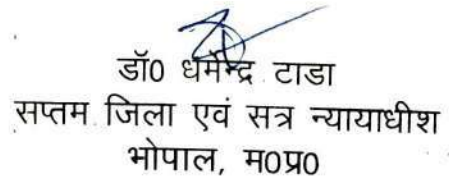 डॉ0 धर्मेन्द्र टाडा
सप्तम जिला एवं सत्र न्यायाधीश
भोपाल, म0प्र0